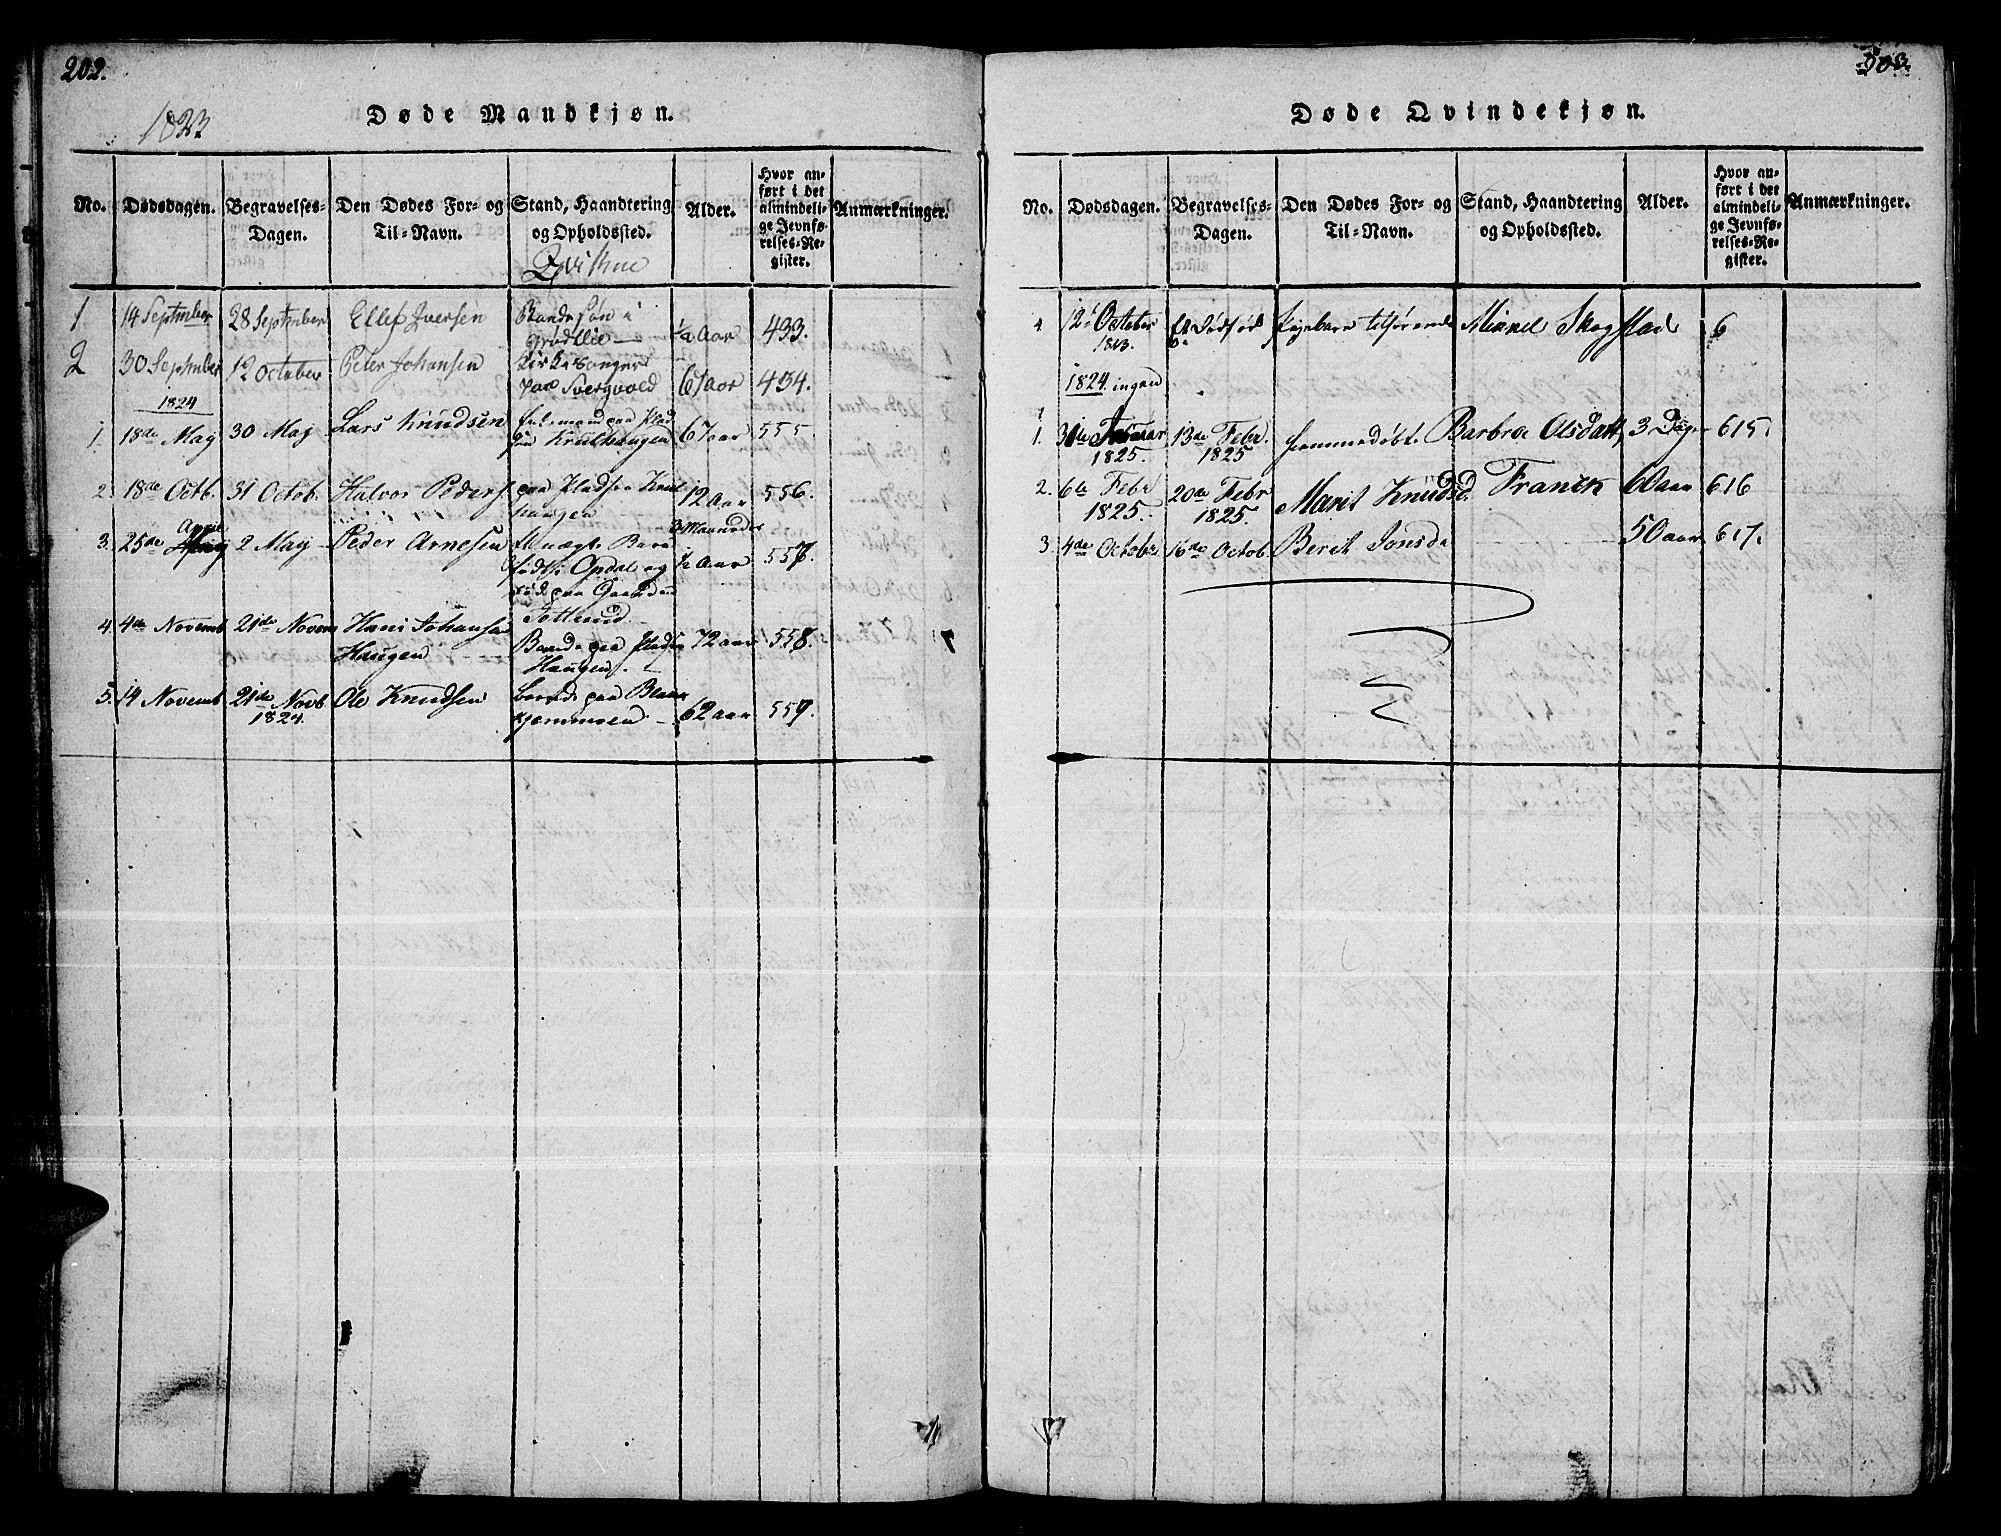 202.
1823
Døde Mandkjøn.
No.
Dødsdagen.
Begravelses-
Dagen.
Den Dødes For- og
Til-Navn.
Stand, Haandtering
og Opholdssted.
Alder.
Hvor an-
ført i det
almindeli-
ge Jevnfø-
relses-Re-
gister.
Anmærkninger.
1 14 September 28 September Ellef Iversen ½ Aar 433.
2 30 September 12 October Peter Johansen Kirkesanger 67 Aar 434.
1824
1. 18de May 30 May Lars Knudsen 67 aar 555.
2. 18de Octb. 31 Octob. Halvor Peders paa Pladsen 12 Aar 556.
haugen
3. 25de April 2 May Peder Arnesen ½ Aar 557.
født i Opdal og
død paa Gaarden
4. 4de Novemb 21de Novem Hans Johansen 72 aar 558.
Haugen paa Pladsen
Haugen
5. 14 Novemb 21de Novb Ole Knudsen 62 aar 559.
1824.
203.
Døde Qvindekjøn.
No.
Dødsdagen.
Begravelses-
Dagen.
Den Dødes For- og
Til-Navn.
Stand, Haandtering
og Opholdssted.
Alder.
Hvor an-
ført i det
almindeli-
ge Jevnfø-
relses-Re-
gister.
Anmærkninger.
4 12te October Dødfød Pigebarn tilhørende Mikkel Skogstad 6
1823.
1824. ingen
1. 13de Febr. hjemmedøbt Barbroe Olsdatt. 3 Dager 615.
1825. 1825
2. 6te Febr 20de Febr Marit Knudsd. Franck 60 aar 616
1825. 1825.
3. 4de Octobr. 16de Octob. Berit Jonsda 50 aar 617.